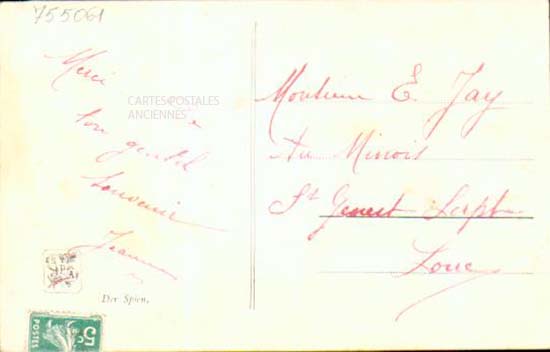 755061
Merci de
ton gentil
souvenir
Jeanne
CARTES POSTALES
ANCIENNES
Der Spion.
POSTES
5c
Monsieur E. Jay
Au Minois
St Genest Lerpt
Loire